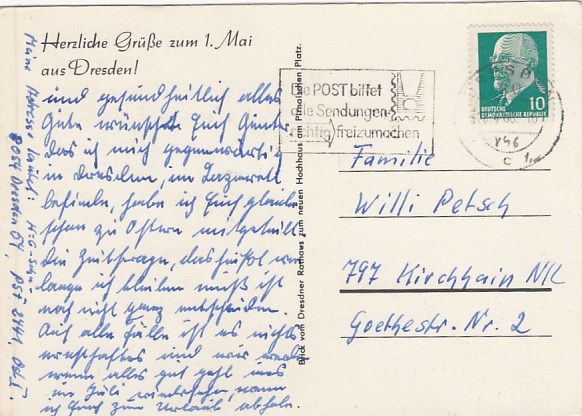 Herzliche Grüße zum 1. Mai
aus Dresden!
und gesundheitlich alles
Gute wünscht Euch Günter
Das ich mich gegenwärtig
in Dresden, im Lazarett
befinde, habe ich Euch glaube
schon zu Ostern mitgeteilt
Die Zeitfrage, das heißt wie
lange ich bleiben muß ist
noch nicht ganz entschieden.
Auf alle Fälle ist es nichts
ernsthaftes und wir
wenn alles gut geht uns
im Juli wiedersehen, wenn
ich Euch zum Urlaub abhole.
Meine Adresse lautet:
8054 Dresden
Blick vom Dresdner Rathaus zum neuen Hochhaus am Pirnaischen Platz.
Die POST bittet
alle Sendungen
richtig freizumachen
10
DEUTSCHE
DEMOKRATISCHE REPUBLIK
Familie
Willi Petsch
797 Kirchhain NL
Goethestr. Nr. 2